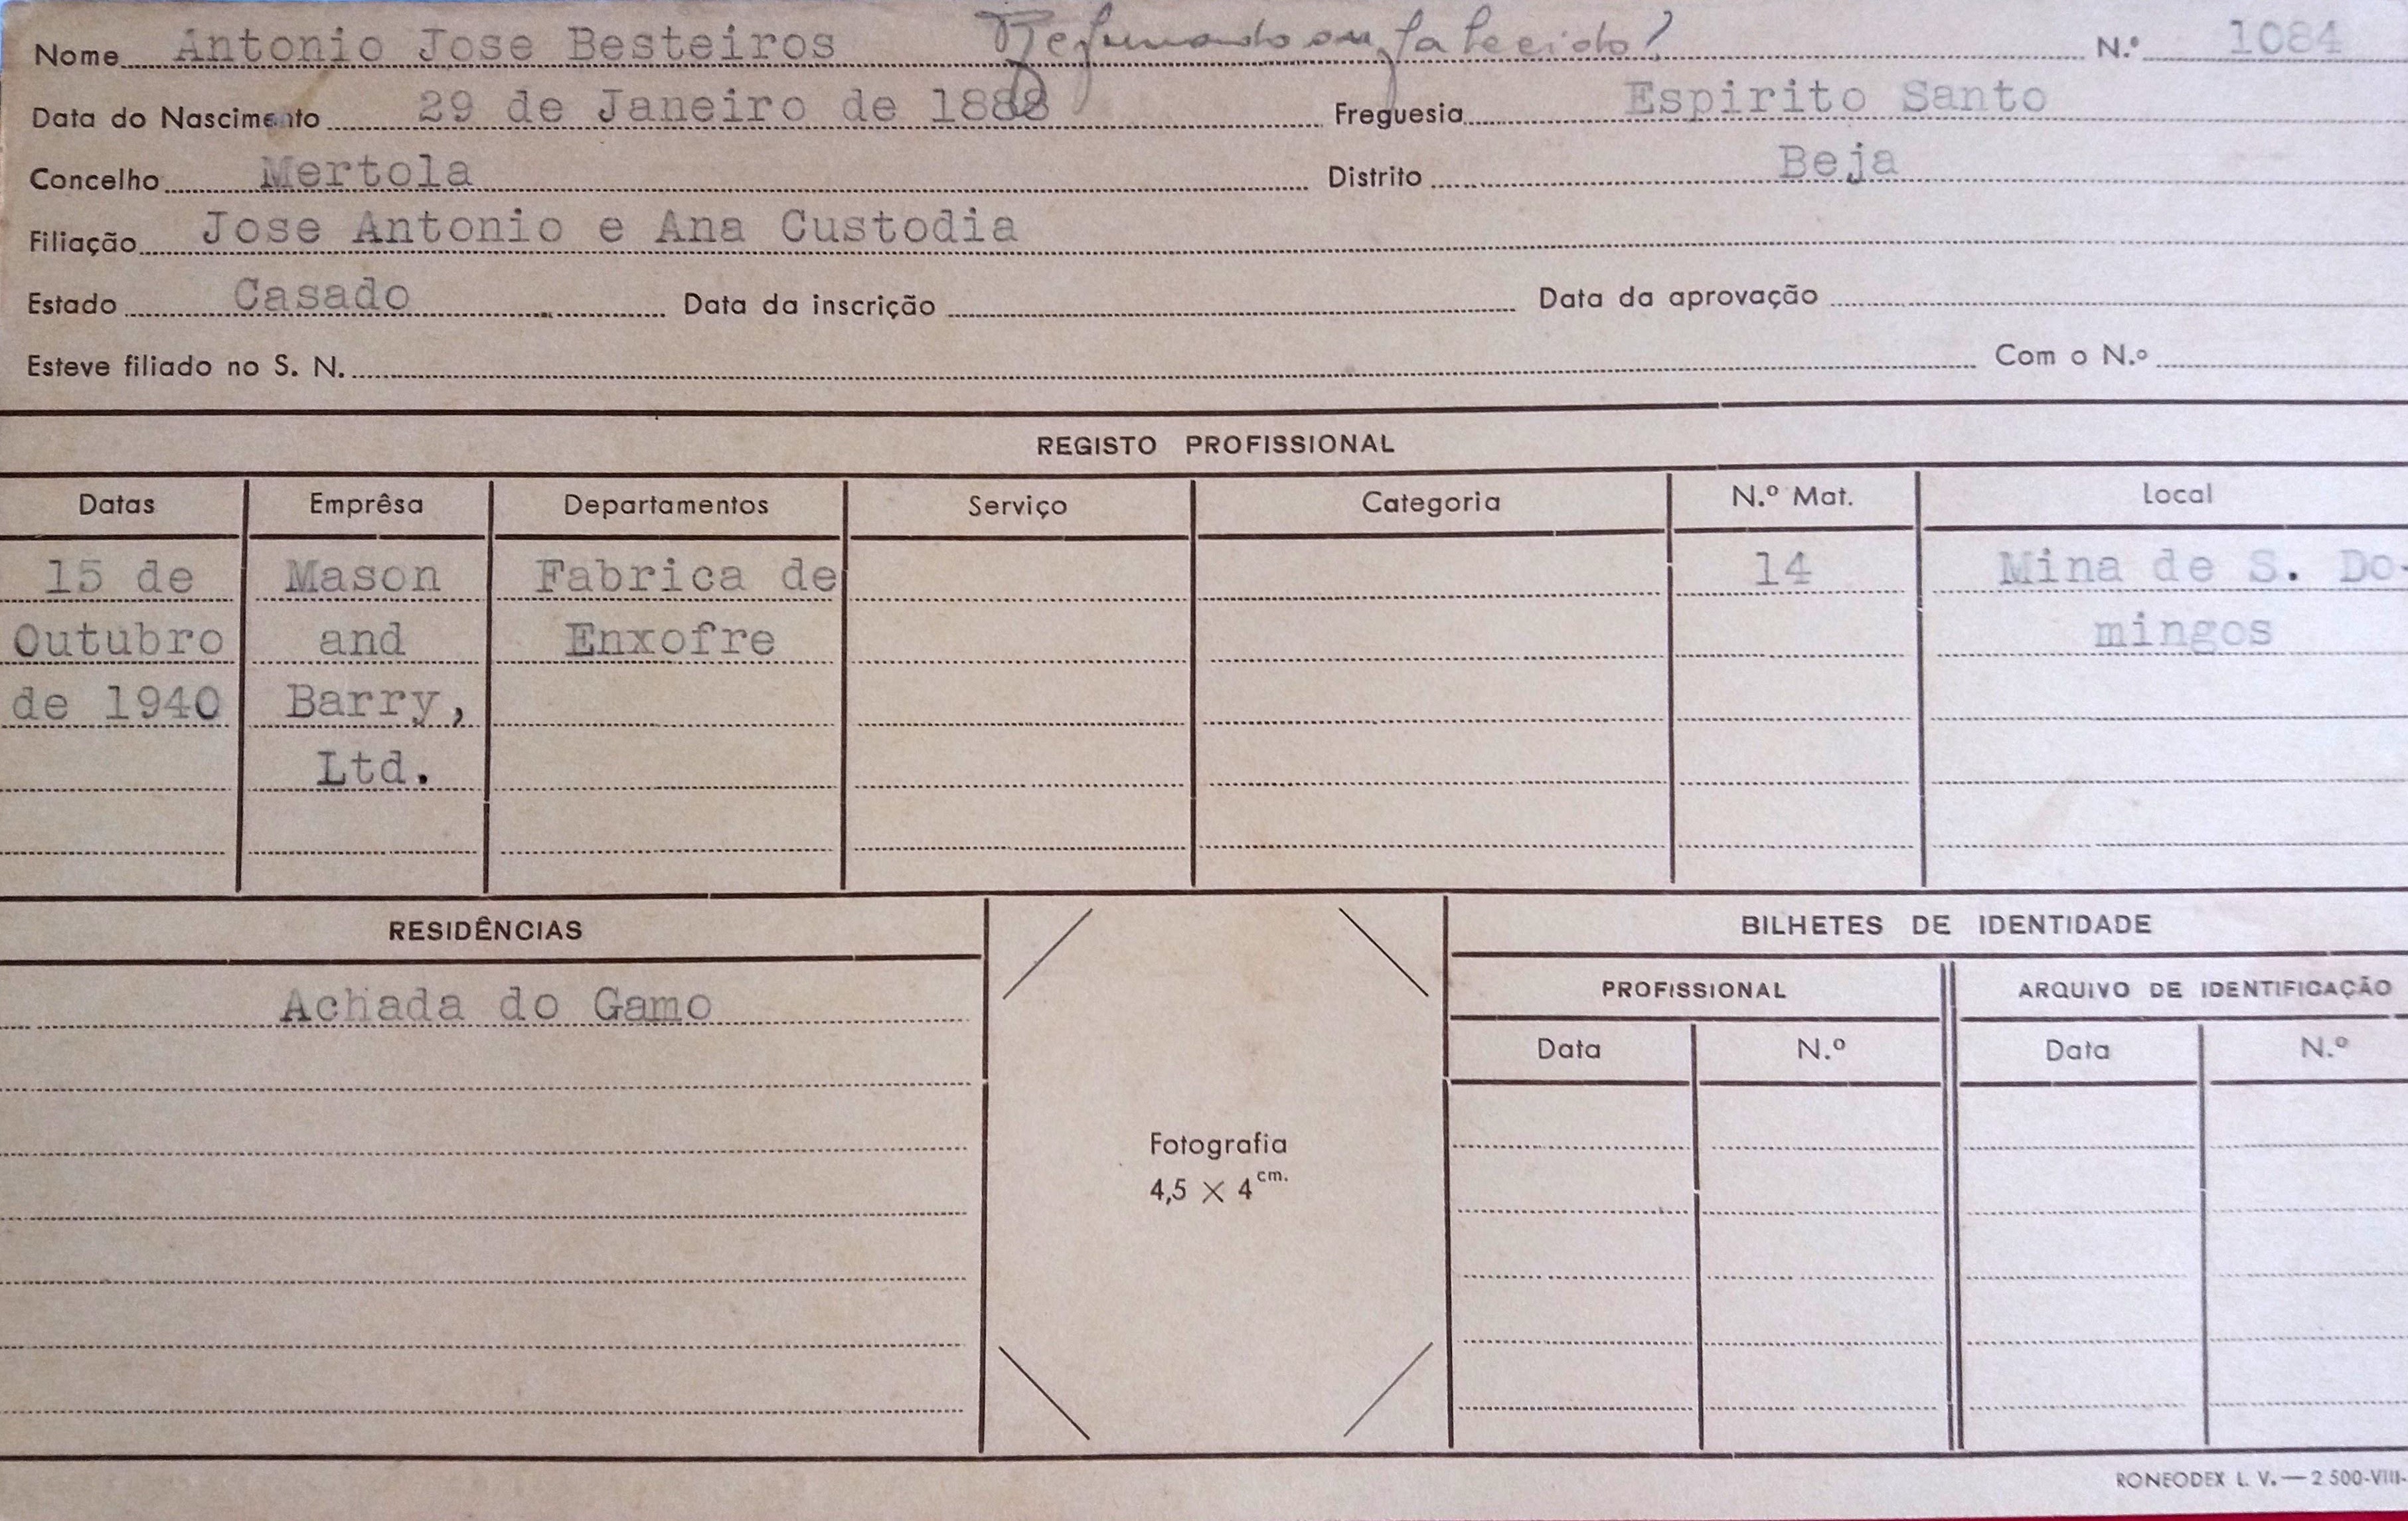 Nome Antonio Jose Besteiros Reformado ou falecido? N.º 1084
Data do Nascimento 29 de Janeiro de 1888 Freguesia Espirito Santo
Concelho Mertola Distrito Beja
Filiação Jose Antonio e Ana Custodia
Estado Casado Data da inscrição Data da aprovação
Esteve filiado no S. N. Com o N.º
REGISTO PROFISSIONAL
Datas Emprêsa Departamentos Serviço Categoria N.º Mat. Local
15 de Mason Fabrica de 14 Mina de S. Do-
Outubro and Enxofre mingos
de 1940 Barry,
Ltd.
RESIDÊNCIAS BILHETES DE IDENTIDADE
Achada do Gamo PROFISSIONAL ARQUIVO DE IDENTIFICAÇÃO
Data N.º Data N.º
Fotografia
4,5 × 4 cm.
RONEODEX L. V. — 2 500-VIII-